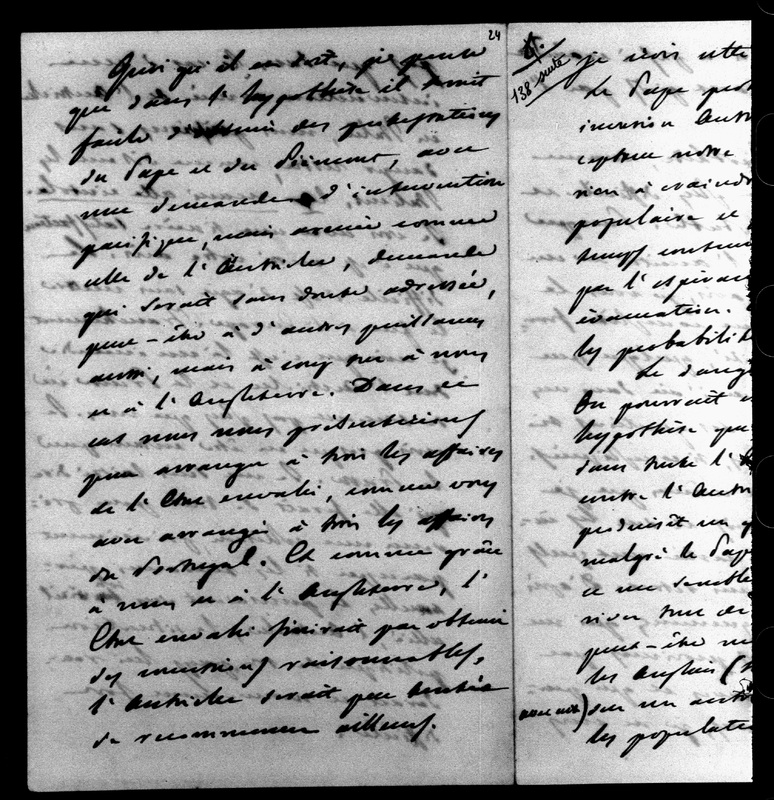 24
Quoi qu'il en soit, je pense
que dans l'hypothèse il serait
facile d'obtenir des protestations
du Pape et du Piémont, avec
une demande d'intervention
pacifique, mais armée comme
celle de l'Autriche, demande
qui serait sans doute adressée,
peut-être à d'autres puissances
aussi, mais à coup sûr à nous
et à l'Angleterre. Dans ce
cas nous nous présenterions
pour arranger à trois les affaires
de l'État envahi, comme vous
avez arrangé à trois les affaires
du Portugal. Et comme grâce
à nous et à l'Angleterre, l'
État envahi finirait par obtenir
des institutions raisonnables,
l'Autriche serait peu tentée
de recommencer ailleurs.
4.
138 suite
je crois
Le Pape
invasion Autr
notre
rien à craind
populaire et
temps
par l'espéran
évacuation.
les probabilit
Le dang
On pourrait
hypothèse que
dans toute l'
contre l'Autri
produisît un
malgré le Pap
ce me semble
peut-être
les Anglais (
avec nous) sur un autre
les populatio